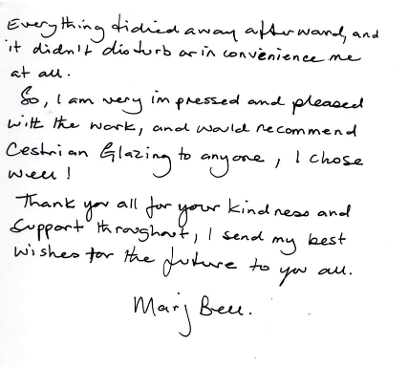 Everything tidied away afterward, and
it didn't disturb or inconvenience me
at all.
So, I am very impressed and pleased
with the work, and would recommend
Cestrian Glazing to anyone, I chose
well!
Thank you all for your kindness and
support throughout, I send my best
wishes for the future to you all.
Marj Bell.